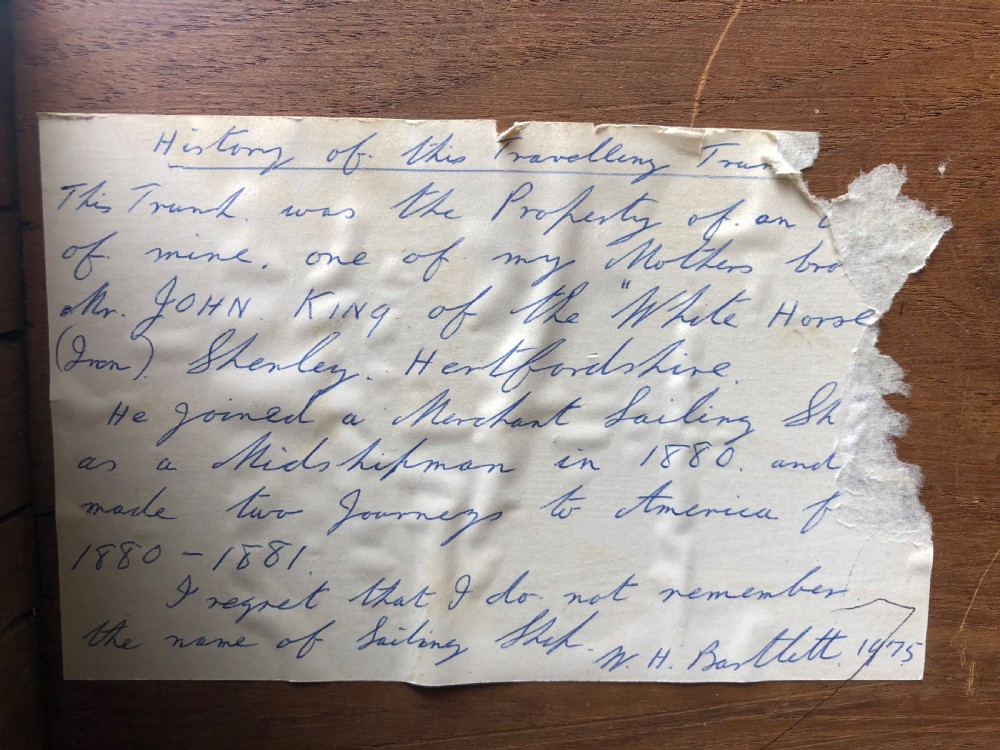 History of this Travelling Trun
This Trunk. was the Property of. an
of mine. one of my Mothers bro
Mr. JOHN KING of the "White Horse
Shenley. Hertfordshire.
He joined a Merchant Sailing Sh
as a Midshipman in 1880. and
made two Journeys to America f
1880 - 1881.
I regret that I do not remember
the name of Sailing Ship.
W. H. Bartlett. 1975